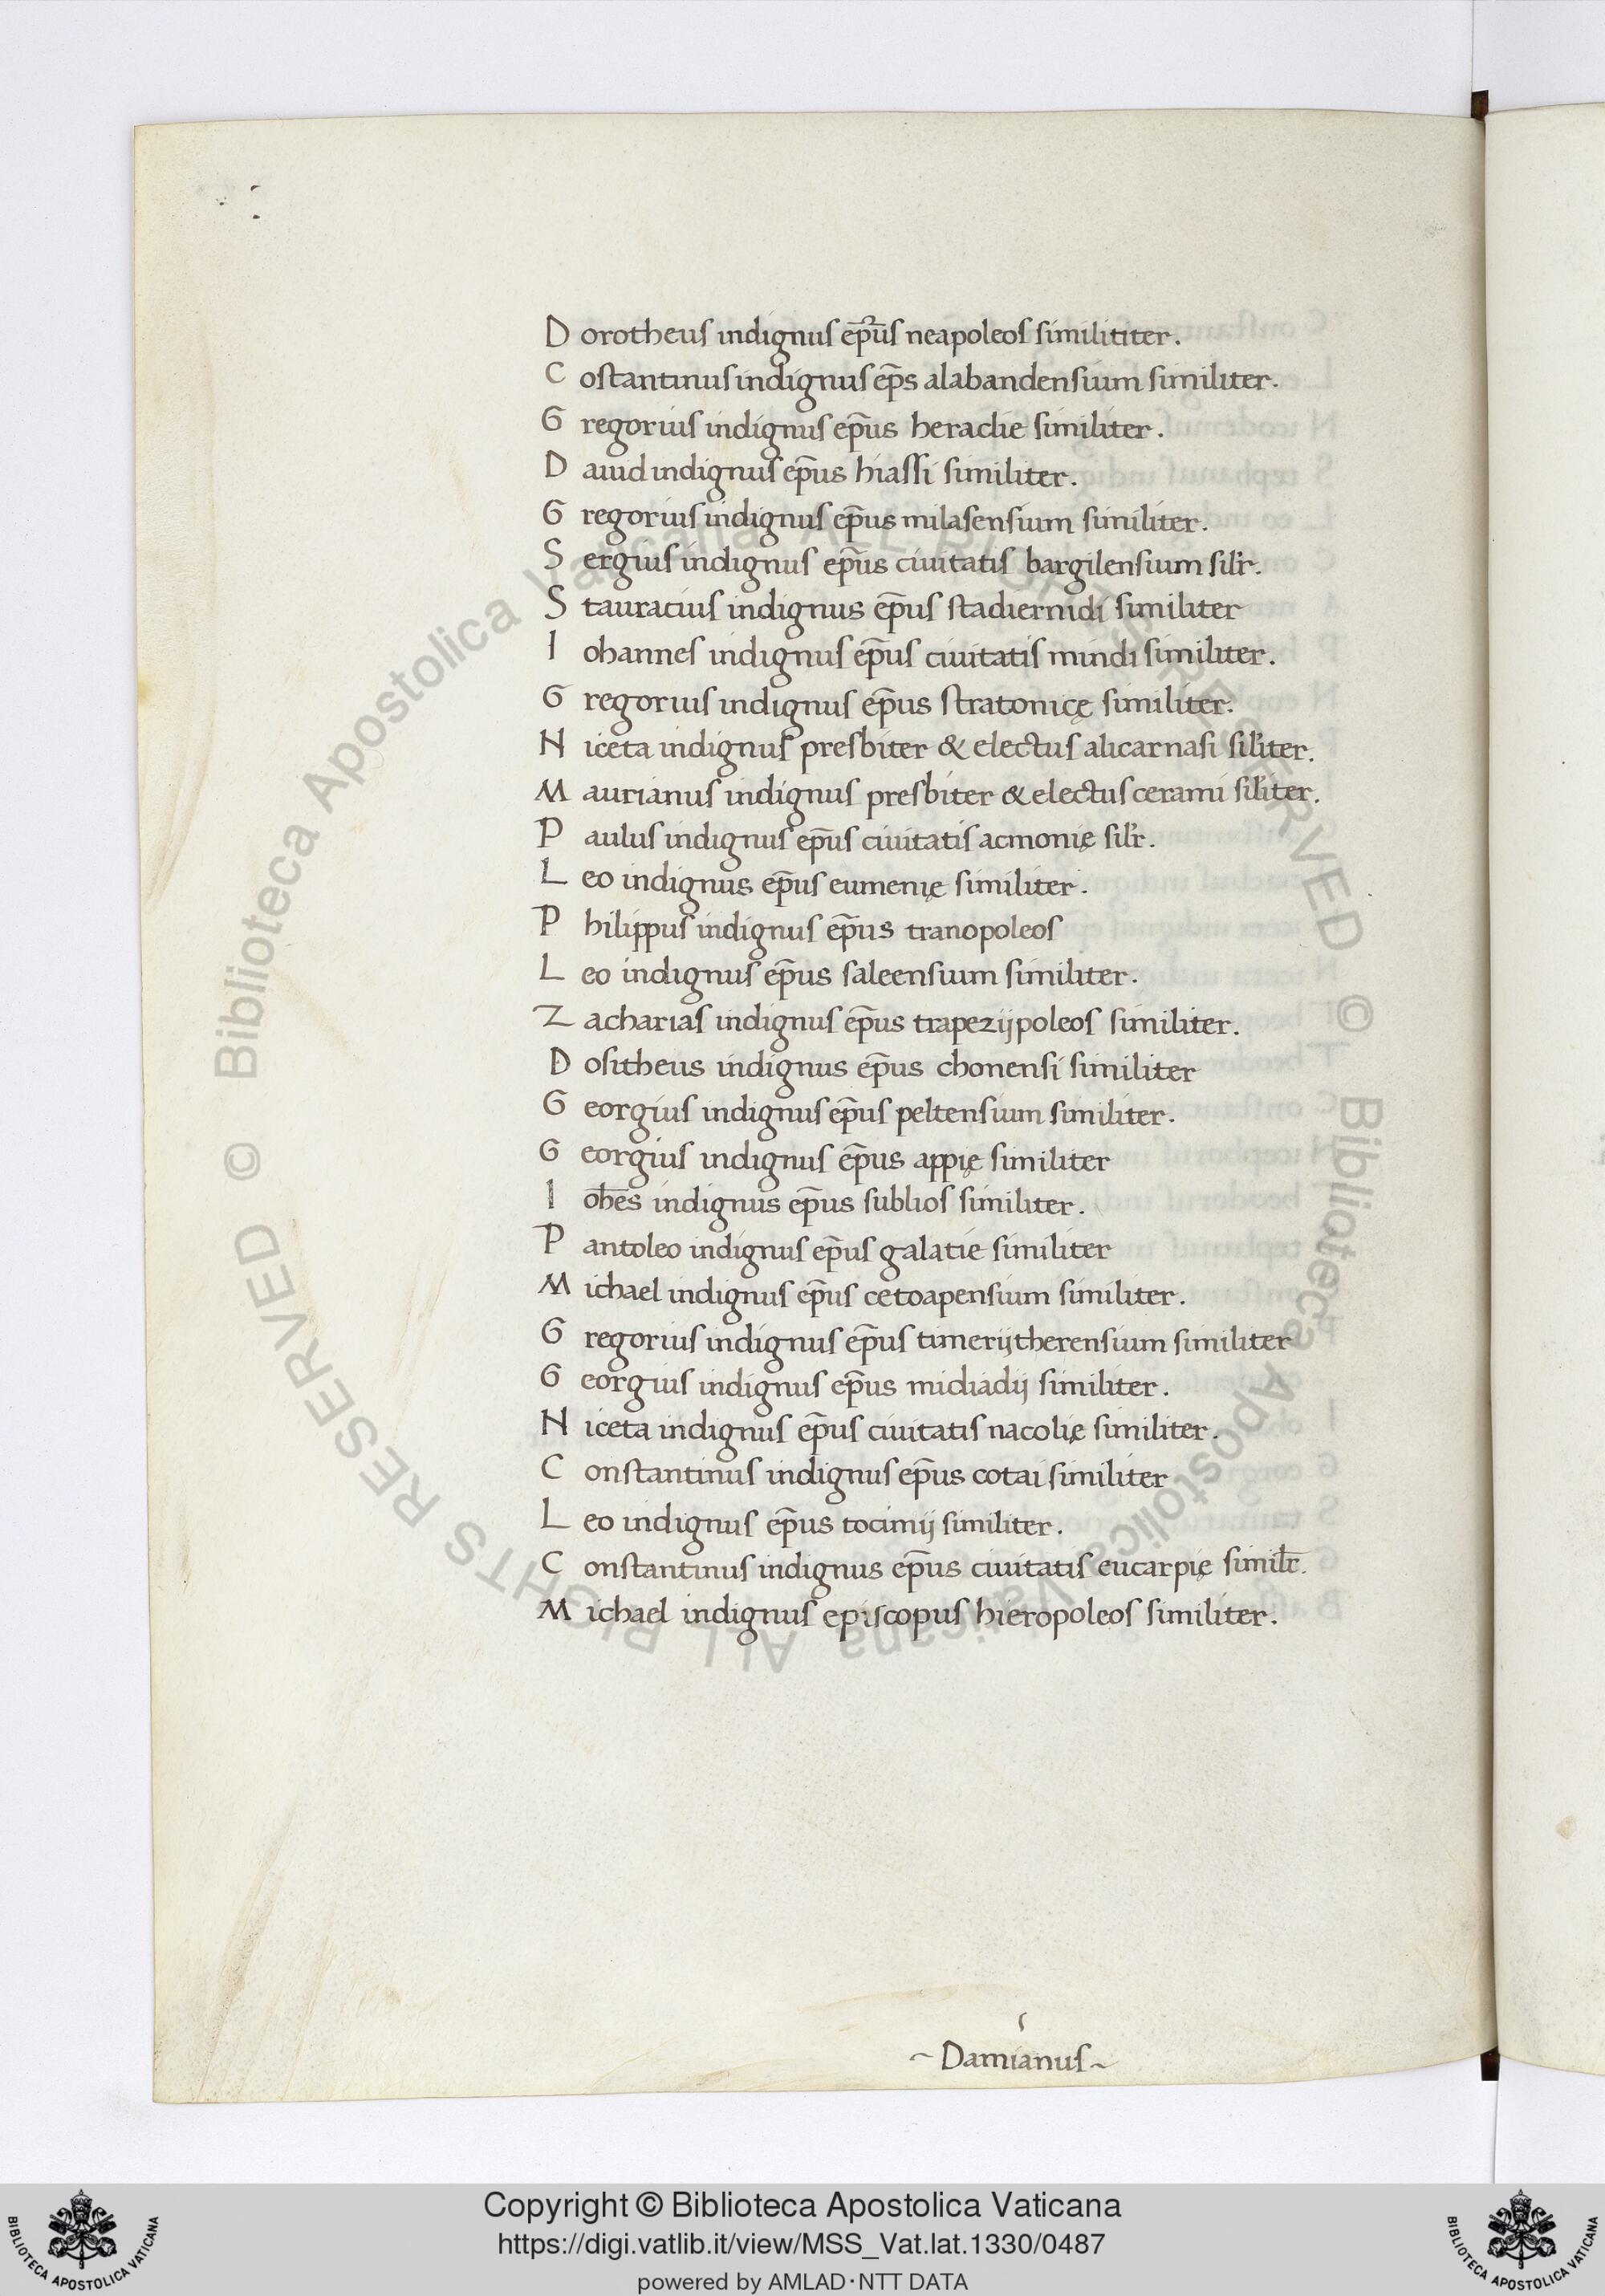 Dorotheus indignus ep̅us neapoleos similititer.
Costantinus indignus ep̅s alabandensium similiter.
Gregorius indignus ep̅us heraclie similiter.
Dauid indignus ep̅us hiassi similiter.
Gregorius indignus ep̅us milasensium similiter.
Sergius indignus ep̅us ciuitatis bargilensium sil'r.
Stauracius indignus ep̅us stadiernidi similiter
Iohannes indignus ep̅us ciuitatis mindi similiter.
Gregorius indignus ep̅us stratonicę similiter.
Niceta indignus presbiter & electus alicarnasi sil'iter.
Maurianus indignus presbiter & electus cerami sil'iter.
Paulus indignus ep̅us ciuitatis acmonię sil'r.
Leo indignus ep̅us eumenię similiter.
Philippus indignus ep̅us tranopoleos
Leo indignus ep̅us saleensium similiter.
Zacharias indignus ep̅us trapezijpoleos similiter.
Dositheus indignus ep̅us chonensi similiter
Georgius indignus ep̅us peltensium similiter.
Georgius indignus ep̅us appię similiter
Ioh̅es indignus ep̅us sublios similiter.
Pantoleo indignus ep̅us galatie similiter
Michael indignus ep̅us cetoapensium similiter.
Gregorius indignus ep̅us timerijtherensium similiter
Georgius indignus ep̅us midiadij similiter.
Niceta indignus ep̅us ciuitatis nacolię similiter.
Constantinus indignus ep̅us cotai similiter
Leo indignus ep̅us tocimij similiter.
Constantinus indignus ep̅us ciuitatis eucarpię simil̅r.
Michael indignus episcopus hieropoleos similiter.
~Damianus~
Copyright © Biblioteca Apostolica Vaticana
https://digi.vatlib.it/view/MSS_Vat.lat.1330/0487
powered by AMLAD·NTT DATA
BIBLIOTECA APOSTOLICA VATICANA
BIBLIOTECA APOSTOLICA VATICANA
© Biblioteca Apostolica Vaticana ALL RIGHTS RESERVED © Biblioteca Apostolica Vaticana ALL RIGHTS RESERVED